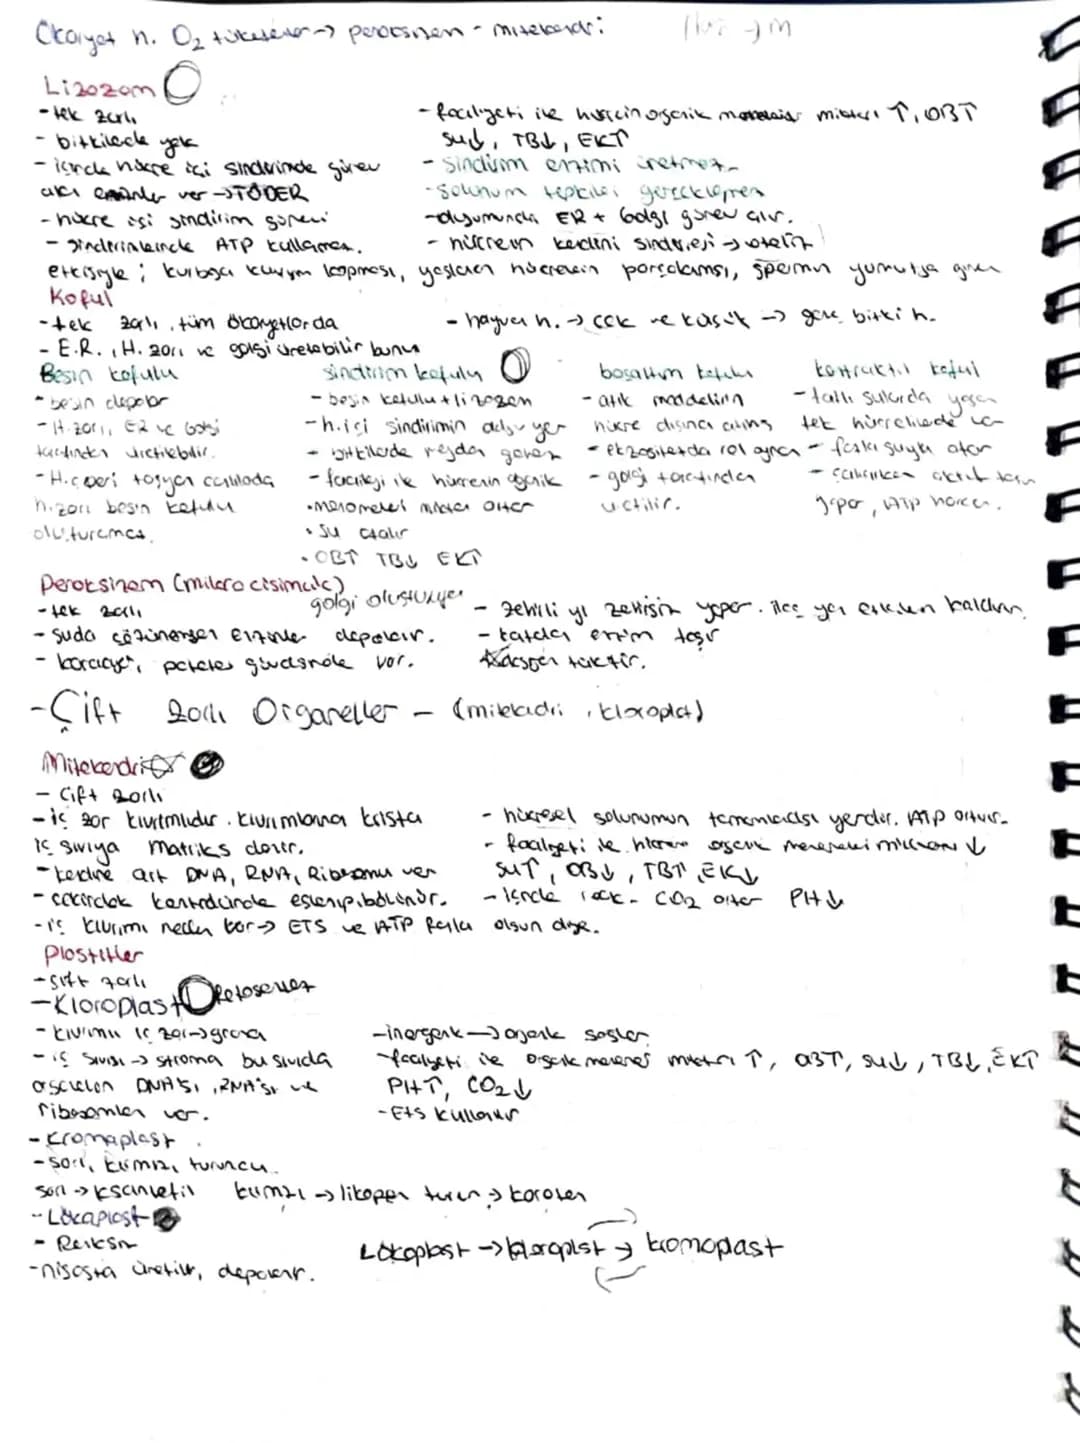 Ökaryot h. O₂ tüketenler → peroksizom - mitokondri
Lizozom
- tek zarlı
- bitkilerde yok
- içinde hücre içi sindirimde görev
alıcı enzimler var → TÖDER
- hücre içi sindirim görevi
- sindirimlerinde ATP kullanmaz.
- faaliyeti ile hücrenin organik monomer miktarı ↑, OB↑
su↓, TB↓, EK↑
- sindirim enzimi üretmez
- solunum tepkileri gerçekleşmez
- oluşumunda ER + Golgi görev alır.
- hücrenin kendini sindirmesi → otoliz
etkisiyle; kurbağa kuyruğu kopması, yaşlanan hücrelerin parçalanması, spermin yumurtaya girmesi
Koful
- tek zarlı, tüm ökaryotlarda
- hayvan h. → çok ve küçük → genç bitki h.
- E.R., H. zarı ve golgi üretebilir bunu
Besin kofulu
- besin depolar
- H. zarı, ER ve Golgi
tarafından üretilebilir.
- H. çeperi taşıyan canlılarda
h. zarı besin kofulu
oluşturamaz.
sindirim kofulu
- besin kofulu + lizozom
- h. içi sindirimin olduğu yer
- bitkilerde görülmez
- faaliyeti ile hücrenin organik
• monomerleri miktarı artar
• su azalır
• OB↑ TB↓ EK↑
boşaltım kofulu
- atık maddelerin
hücre dışına atılması
- ekzositozda rol oynar
- golgi tarafından
üretilir.
kontraktil koful
- tatlı sularda yaşayan
tek hücrelilerde var
- fazla suyu atar
- çalışırken aktif taşıma
yapar, ATP harcar.
Peroksizom (mikro cisimcik)
golgi oluşturuyor
- tek zarlı
- suda çözünen enzimler depolanır.
- karaciğer, patates gövdesinde var.
- zehirli yi zehirsiz yapar. ilaç yan etkisini kaldırır.
- katalaz enzimi taşır
- Çift Zarlı Organeller - (mitokondri, kloroplast)
Mitokondri
- Çift zarlı
- iç zar kıvrımlıdır. kıvrımlarına krista
iç sıvıya matriks denir.
- kendine ait DNA, RNA, Ribozomu var
- çekirdek kontrolünde eşlenip bölünür.
- iç kıvrımı neden var → ETS ve ATP fazla olsun diye.
- hücresel solunumun tamamlandığı yerdir. ATP artırır.
- faaliyeti ile hücrenin organik monomerleri miktarı ↓
SU↑, OB↓, TB↑, EK↓
- içinde CO₂ artar PH↓
Plastitler
- çift zarlı
- Kloroplast fotosentez
- kıvrımlı iç zar → grana
- iç sıvısı → stroma bu sıvıda
DNA'sı, RNA'sı ve
ribozomları var.
- inorganik → organik sağlar
- faaliyeti ile organik monomer miktarı ↑, OB↑, su↓, TB↓, EK↑
PH↑, CO₂↓
- ETS kullanılır
- Kromoplast
- sarı, kırmızı, turuncu
sarı → ksantofil kırmızı → likopen turuncu → karoten
- Lökoplast
- Renksiz
- nişasta üretilir, depolanır.
Lökoplast → kloroplast → kromoplast